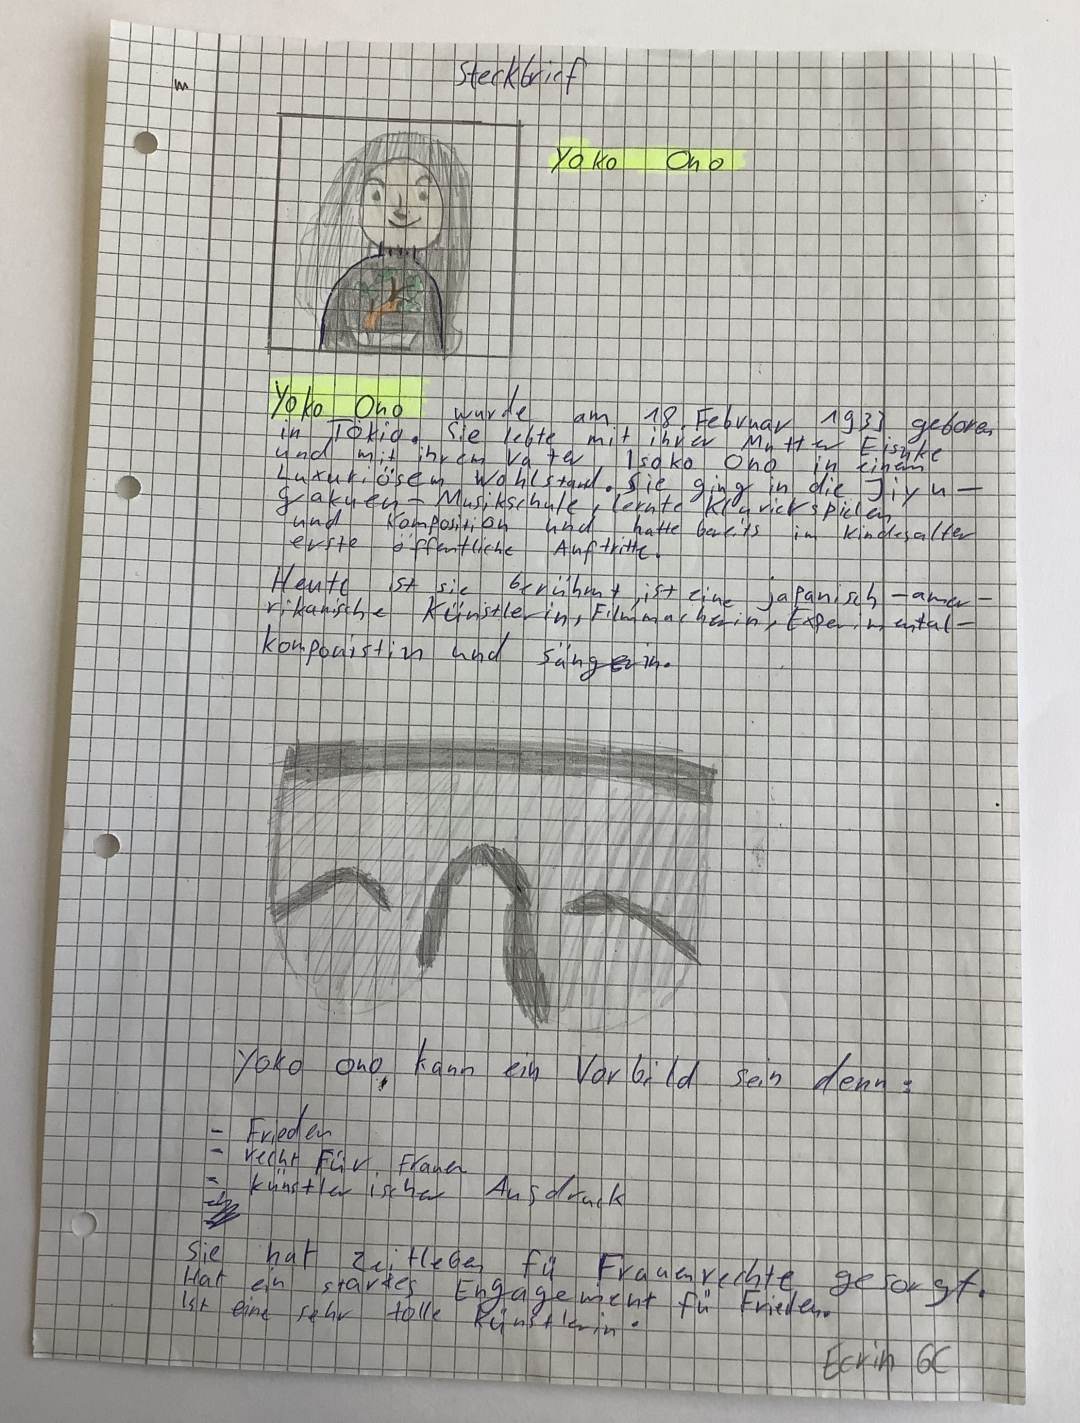 Steckbrief
Yoko Ono
Yoko Ono wurde am 18. Februar 1933 geboren
in Tokio. Sie lebte mit ihrer Mutter Eisuke
und mit ihrem Vater Isoko Ono in einem
Luxuriösem Wohlstand. Sie ging in die Jiyu-
Gakuen-Musikschule, lernte Klavierspielen
und Komposition und hatte bereits im Kindesalter
erste öffentliche Auftritte.
Heute ist sie berühmt, ist eine japanisch-amer-
rikanische Künstlerin, Filmmacherin, Experimental-
komponistin und Sängerin.
Yoko Ono kann ein Vorbild sein denn:
- Frieden
- recht Für Frauen
- künstlerischer Ausdruck
Sie hat zeitleben fü Frauenrechte gesorgt.
Hat ein starkes Engagement fü Frieden.
Ist eine sehr tolle Künstlerin.
Ecrin 6C